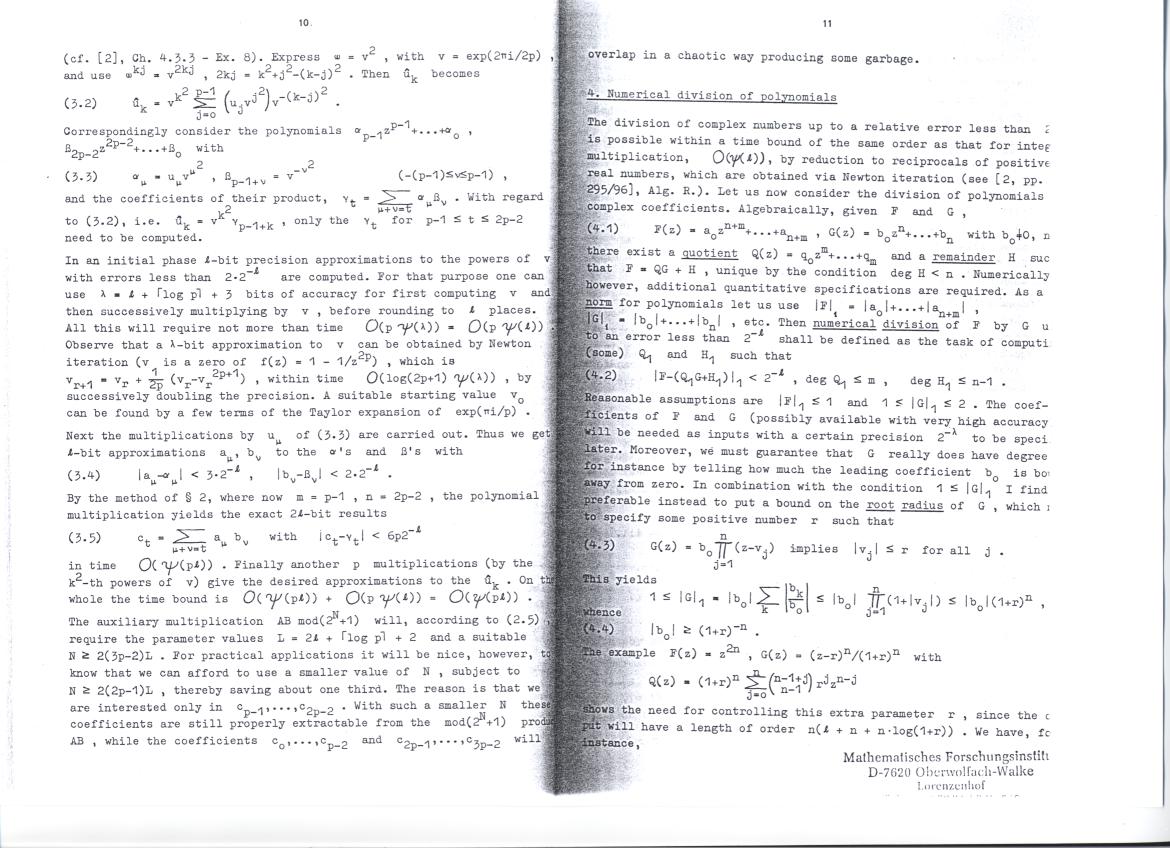 10
(cf. [2], Ch. 4.3.3 - Ex. 8). Express ω = v², with v = exp(2πi/2p) ,
and use ω^kj = v^2kj , 2kj = k²+j²-(k-j)² . Then û_k becomes
(3.2) û_k = v^k² Σ_{j=o}^{p-1} (u_j v^j²) v^-(k-j)² .
Correspondingly consider the polynomials α_{p-1}z^{p-1}+...+α_o ,
β_{2p-2}z^{2p-2}+...+β_o with
(3.3) α_μ = u_μ v^μ² , β_{p-1+ν} = v^-ν² (-(p-1)≤ν≤p-1) ,
and the coefficients of their product, γ_t = Σ_{μ+ν=t} α_μ β_ν . With regard
to (3.2), i.e. û_k = v^k² γ_{p-1+k} , only the γ_t for p-1 ≤ t ≤ 2p-2
need to be computed.
In an initial phase ℓ-bit precision approximations to the powers of v
with errors less than 2·2^-ℓ are computed. For that purpose one can
use λ = ℓ + ⌈log p⌉ + 3 bits of accuracy for first computing v and
then successively multiplying by v , before rounding to ℓ places.
All this will require not more than time O(p ψ(λ)) = O(p ψ(ℓ)) .
Observe that a λ-bit approximation to v can be obtained by Newton
iteration (v is a zero of f(z) = 1 - 1/z^{2p}) , which is
v_{r+1} = v_r + 1/2p (v_r-v_r^{2p+1}) , within time O(log(2p+1) ψ(λ)) , by
successively doubling the precision. A suitable starting value v_o
can be found by a few terms of the Taylor expansion of exp(πi/p) .
Next the multiplications by u_μ of (3.3) are carried out. Thus we get
ℓ-bit approximations a_μ, b_ν to the α's and β's with
(3.4) |a_μ-α_μ| < 3·2^-ℓ , |b_ν-β_ν| < 2·2^-ℓ .
By the method of § 2, where now m = p-1 , n = 2p-2 , the polynomial
multiplication yields the exact 2ℓ-bit results
(3.5) c_t = Σ_{μ+ν=t} a_μ b_ν with |c_t-γ_t| < 6p2^-ℓ
in time O(ψ(pℓ)) . Finally another p multiplications (by the
k²-th powers of v) give the desired approximations to the û_k . On the
whole the time bound is O(ψ(pℓ)) + O(p ψ(ℓ)) = O(ψ(pℓ)) .
The auxiliary multiplication AB mod(2^N+1) will, according to (2.5) ,
require the parameter values L = 2ℓ + ⌈log p⌉ + 2 and a suitable
N ≥ 2(3p-2)L . For practical applications it will be nice, however, to
know that we can afford to use a smaller value of N , subject to
N ≥ 2(2p-1)L , thereby saving about one third. The reason is that we
are interested only in c_{p-1},...,c_{2p-2} . With such a smaller N these
coefficients are still properly extractable from the mod(2^N+1) produ
AB , while the coefficients c_o,...,c_{p-2} and c_{2p-1},...,c_{3p-2} will
11
overlap in a chaotic way producing some garbage.
4. Numerical division of polynomials
The division of complex numbers up to a relative error less than
is possible within a time bound of the same order as that for integ
multiplication, O(ψ(ℓ)), by reduction to reciprocals of positive
real numbers, which are obtained via Newton iteration (see [2, pp.
295/96], Alg. R.). Let us now consider the division of polynomials
complex coefficients. Algebraically, given F and G ,
(4.1) F(z) = a_o z^{n+m}+...+a_{n+m} , G(z) = b_o z^n+...+b_n with b_o≠0, n
there exist a quotient Q(z) = q_o z^m+...+q_m and a remainder H suc
that F = QG + H , unique by the condition deg H < n . Numerically
however, additional quantitative specifications are required. As a
norm for polynomials let us use |F|₁ = |a_o|+...+|a_{n+m}| ,
|G|₁ = |b_o|+...+|b_n| , etc. Then numerical division of F by G u
to an error less than 2^-ℓ shall be defined as the task of computi
(some) Q₁ and H₁ such that
(4.2) |F-(Q₁G+H₁)|₁ < 2^-ℓ , deg Q₁ ≤ m , deg H₁ ≤ n-1 .
Reasonable assumptions are |F|₁ ≤ 1 and 1 ≤ |G|₁ ≤ 2 . The coef-
ficients of F and G (possibly available with very high accuracy
will be needed as inputs with a certain precision 2^-λ to be speci
later. Moreover, we must guarantee that G really does have degree
for instance by telling how much the leading coefficient b_o is bo
away from zero. In combination with the condition 1 ≤ |G|₁ I find
preferable instead to put a bound on the root radius of G , which
to specify some positive number r such that
(4.3) G(z) = b_o ∏_{j=1}^{n} (z-v_j) implies |v_j| ≤ r for all j .
This yields
1 ≤ |G|₁ = |b_o| Σ_k |b_k/b_o| ≤ |b_o| ∏_{j=1}^{n} (1+|v_j|) ≤ |b_o|(1+r)^n ,
whence
(4.4) |b_o| ≥ (1+r)^-n .
The example F(z) = z^{2n} , G(z) = (z-r)^n/(1+r)^n with
Q(z) = (1+r)^n Σ_{j=o}^{n} (n-1+j over n-1) r^j z^{n-j}
shows the need for controlling this extra parameter r , since the
put will have a length of order n(ℓ + n + n·log(1+r)) . We have, fo
instance,
Mathematisches Forschungsinstit
D-7620 Oberwolfach-Walke
Lorenzenhof